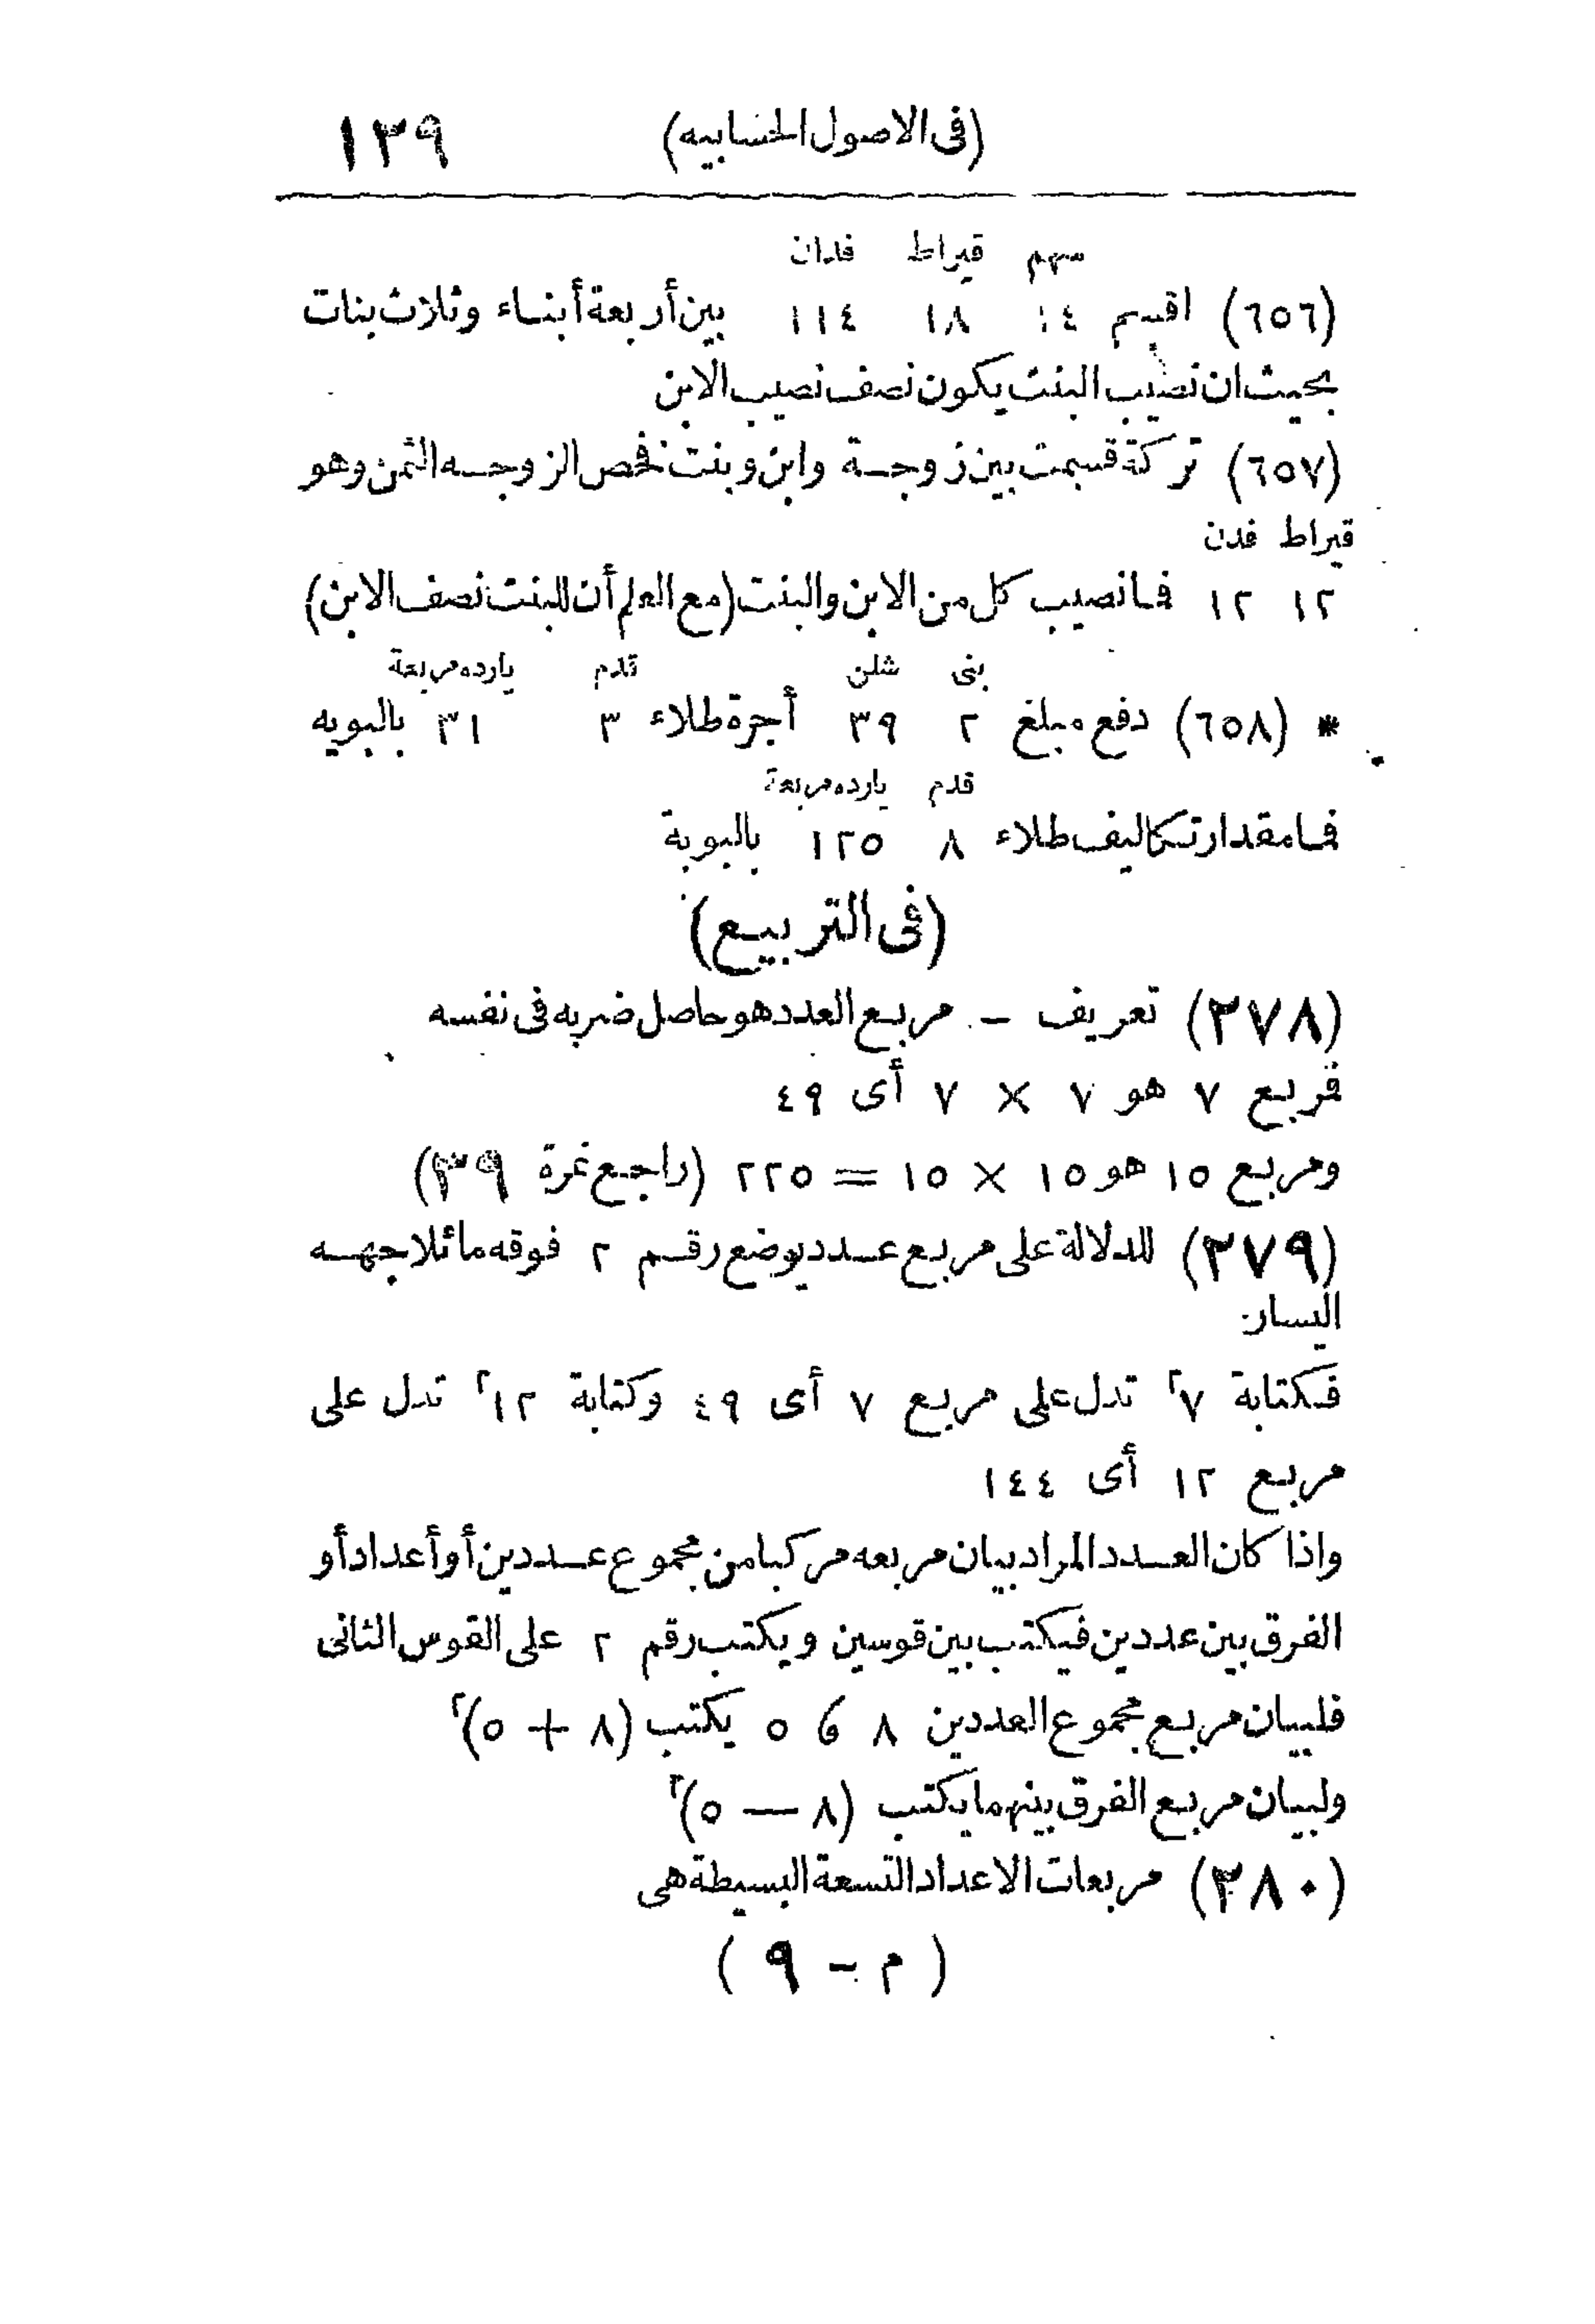 (فى الاصول الحسابيه) ١٣٩
سهم قيراط فدان
(٦٥٦) اقسم ١٤ ١٨ ١١٤ بين أربعة أبناء وثلاث بنات
بحيث ان نصيب البنت يكون نصف نصيب الابن
(٦٥٧) تركة قسمت بين زوجة وابن وبنت فخص الزوجه الثمن وهو
قيراط فدن
١٢ ١٢ فما نصيب كل من الابن والبنت (مع العلم أن للبنت نصف الابن)
بنى شلن قدم يارده مربعة
* (٦٥٨) دفع مبلغ ٢ ٣٩ أجرة طلاء ٣ ٣١ بالبويه
قدم يارده مربعة
فما مقدار تكاليف طلاء ٨ ١٢٥ بالبوية
(فى التربيع)
(٢٧٨) تعريف - مربع العدد هو حاصل ضربه فى نفسه
فمربع ٧ هو ٧ × ٧ أى ٤٩
ومربع ١٥ هو ١٥ × ١٥ = ٢٢٥ (راجع نمرة ٣٩)
(٢٧٩) للدلالة على مربع عدد يوضع رقم ٢ فوقه مائلا جهه
اليسار
فكتابة ٧² تدل على مربع ٧ أى ٤٩ وكتابة ١٢² تدل على
مربع ١٢ أى ١٤٤
واذا كان العدد المراد بيان مربعه مركبا من مجموع عددين أو أعداد أو
الفرق بين عددين فيكتب بين قوسين ويكتب رقم ٢ على القوس الثانى
فلبيان مربع مجموع العددين ٨ و ٥ يكتب (٨ + ٥)²
ولبيان مربع الفرق بينهما يكتب (٨ — ٥)²
(٢٨٠) مربعات الاعداد التسعة البسيطة هى
(م - ٩)